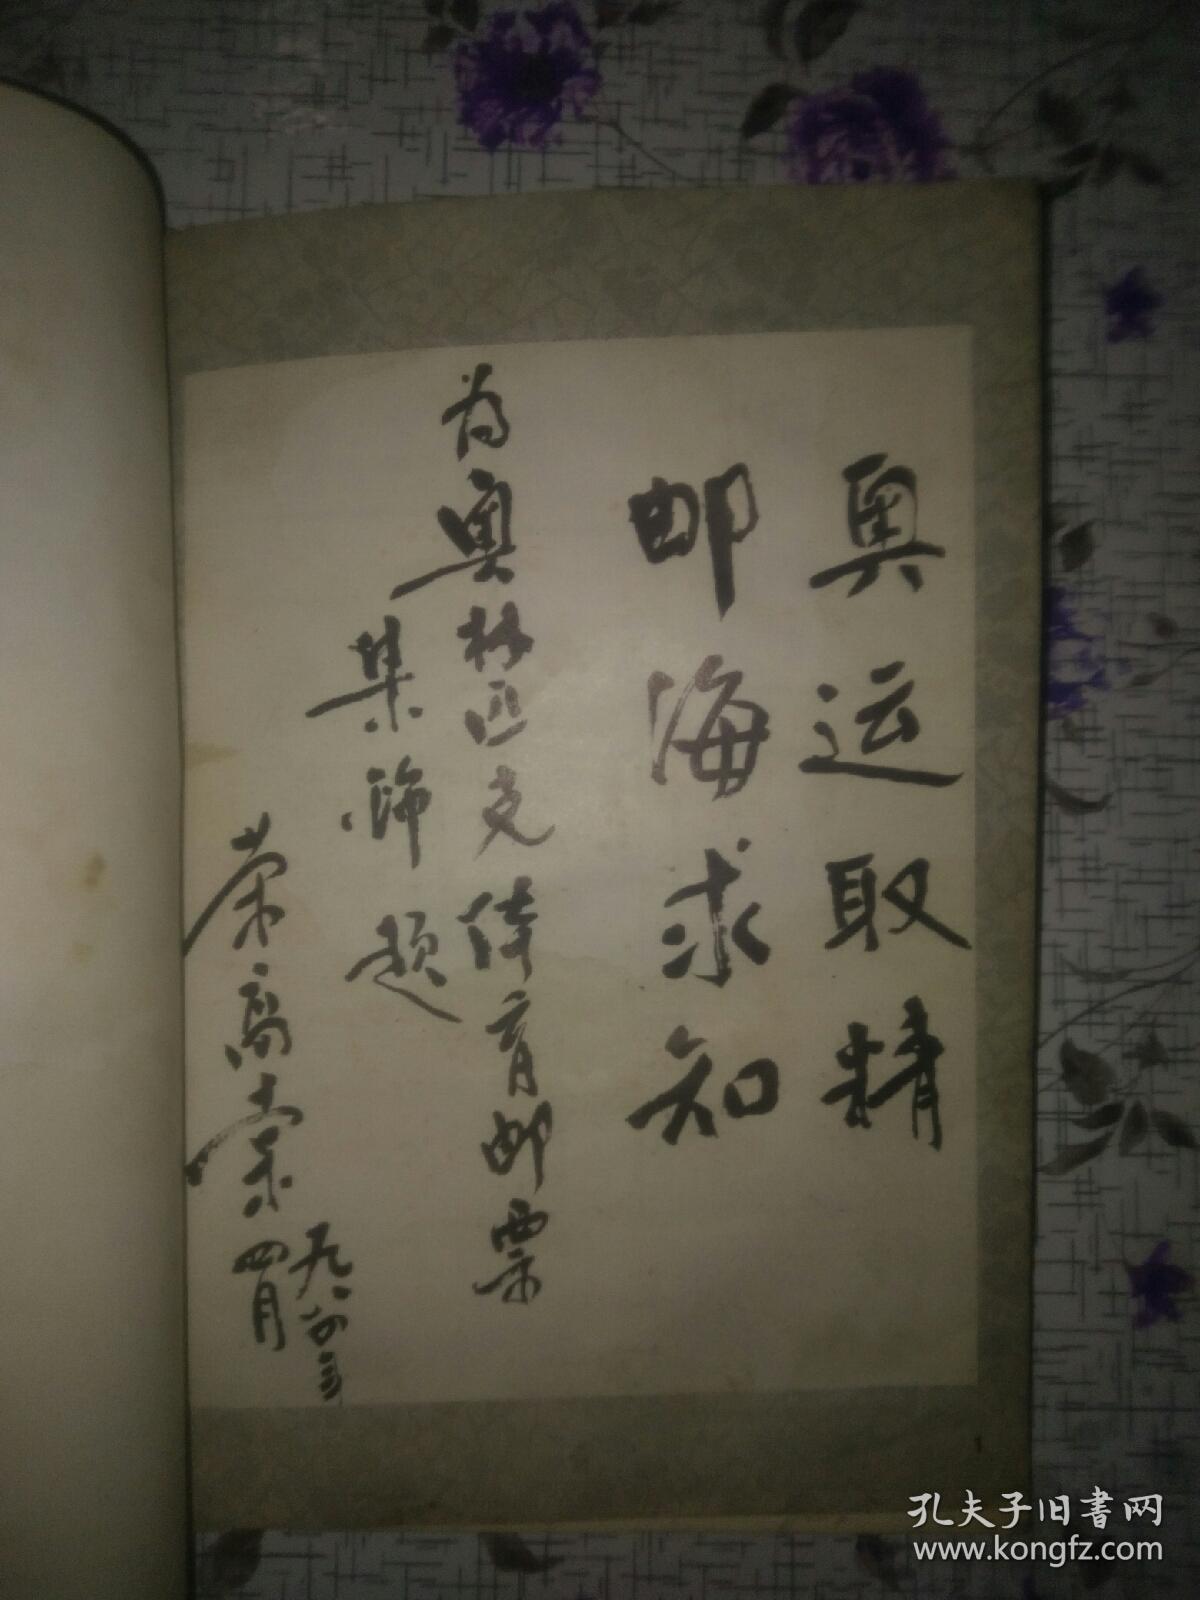 奥运取精
邮海求知
为奥林匹克体育邮票
集锦题
荣高棠
一九八四年
四月
1
孔夫子旧書网
www.kongfz.com